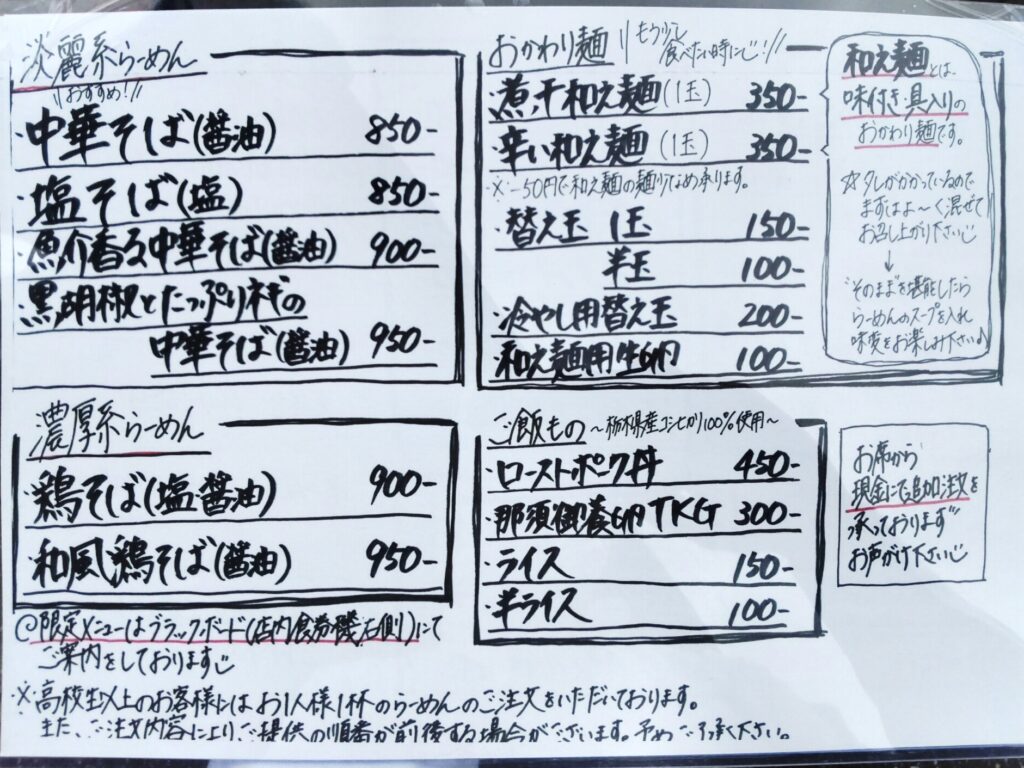 淡麗系らーめん
\\おすすめ!//
・中華そば(醤油) 850-
・塩そば(塩) 850-
・魚介香る中華そば(醤油) 900-
・黒胡椒とたっぷりネギの
中華そば(醤油) 950-
濃厚系らーめん
・鶏そば(塩醤油) 900-
・和風鶏そば(醤油) 950-
◎限定メニューはブラックボード(店内食券機右側)にて
ご案内をしております
※高校生以上のお客様にはお1人様1杯のらーめんのご注文をいただいております。
また、ご注文内容により、ご提供の順番が前後する場合がございます。予めご了承下さい。
おかわり麺 \\もう少し
食べたい時に!//
・煮干和え麺(1玉) 350-
・辛い和え麺(1玉) 350-
※-50円で和え麺の麺少なめ承ります。
・替え玉 1玉 150-
半玉 100-
・冷やし用替え玉 200-
・和え麺用生卵 100-
和え麺とは、
味付き・具入りの
おかわり麺です。
☆タレがかかっているので
まずはよ〜く混ぜて
お召し上がり下さい
↓
そのままを堪能したら
らーめんのスープを入れ
味変をお楽しみ下さい♪
ご飯もの 〜栃木県産コシヒカリ100%使用〜
・ローストポーク丼 450-
・那須御養卵TKG 300-
・ライス 150-
・半ライス 100-
お席から
現金にて追加注文を
承っております
お声がけ下さい